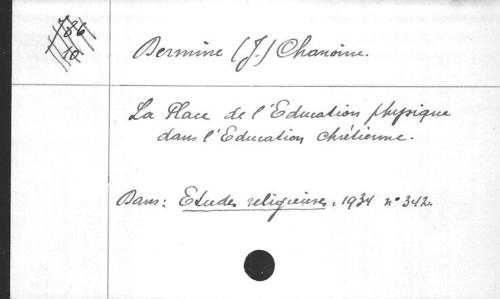 786
10
Dermine (J.) Chanoine.
La Place de l'Education physique
dans l'Education chrétienne.
Dans: Etudes religieuses, 1934 n° 342.